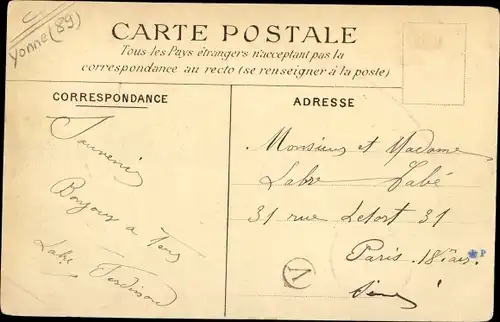 Yonne (89)
CARTE POSTALE
Tous les Pays étrangers n'acceptant pas la
correspondance au recto (se renseigner à la poste)
CORRESPONDANCE
Souvenir
Bonjour a Tous
Labe
ADRESSE
Monsieur et Madame
Labre
31 rue Letort 31
Paris 18
A
P